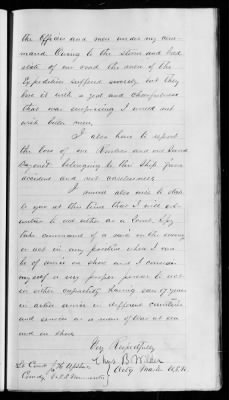 the Officer and men under my com-
mand. Owing to the storm and bad
state of our road the men of the
Expedition suffered severely but they
bore it with a zeal and cheerfulness
that was surprising I would not
wish better men.
I also have to report
the loss of one Musket and one Sword
Bayonet belonging to this Ship from
accident and not carelessness.
I would also wish to state
to you at this time that I will
either as a Scout, Spy
take command of a raid on the enemy
or act in any position where I can
be of service on shore and I consider
myself a very proper person to act
in either capacity having seen 17 years
in active service in different countries
and services as a man of War at sea
and on shore
Very Respectfully
Chas. B. Wilder
Actg Master U.S.N.
Lt Comd J. H. Upshur
Comdg U.S.S. Minnesota